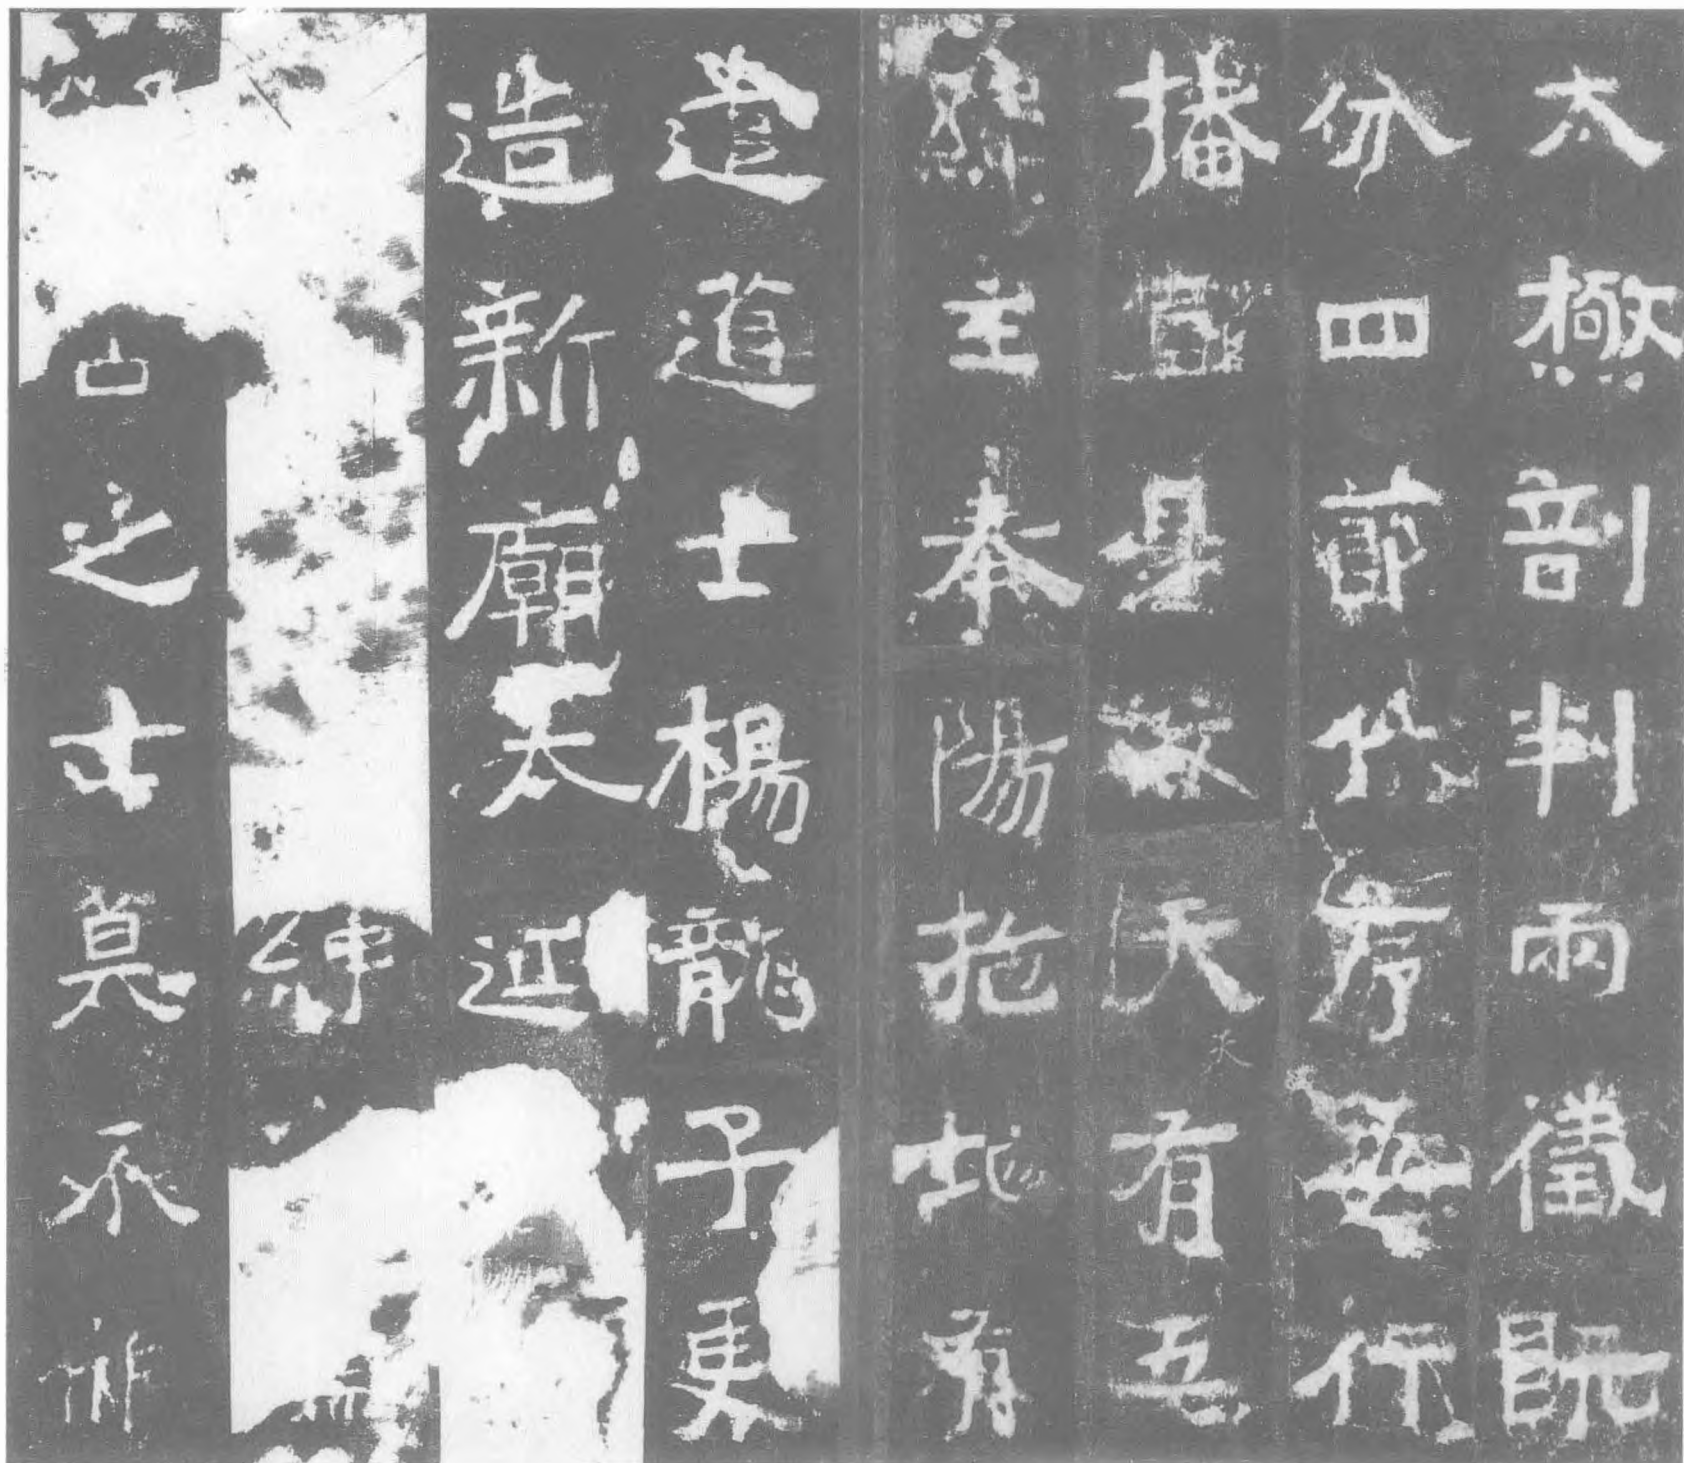 太極剖判兩儀既
分四節代序五行
播宣是故天有五
緯主奉陽施地有
遣道士楊龍子更
造新廟太延
古之士莫不